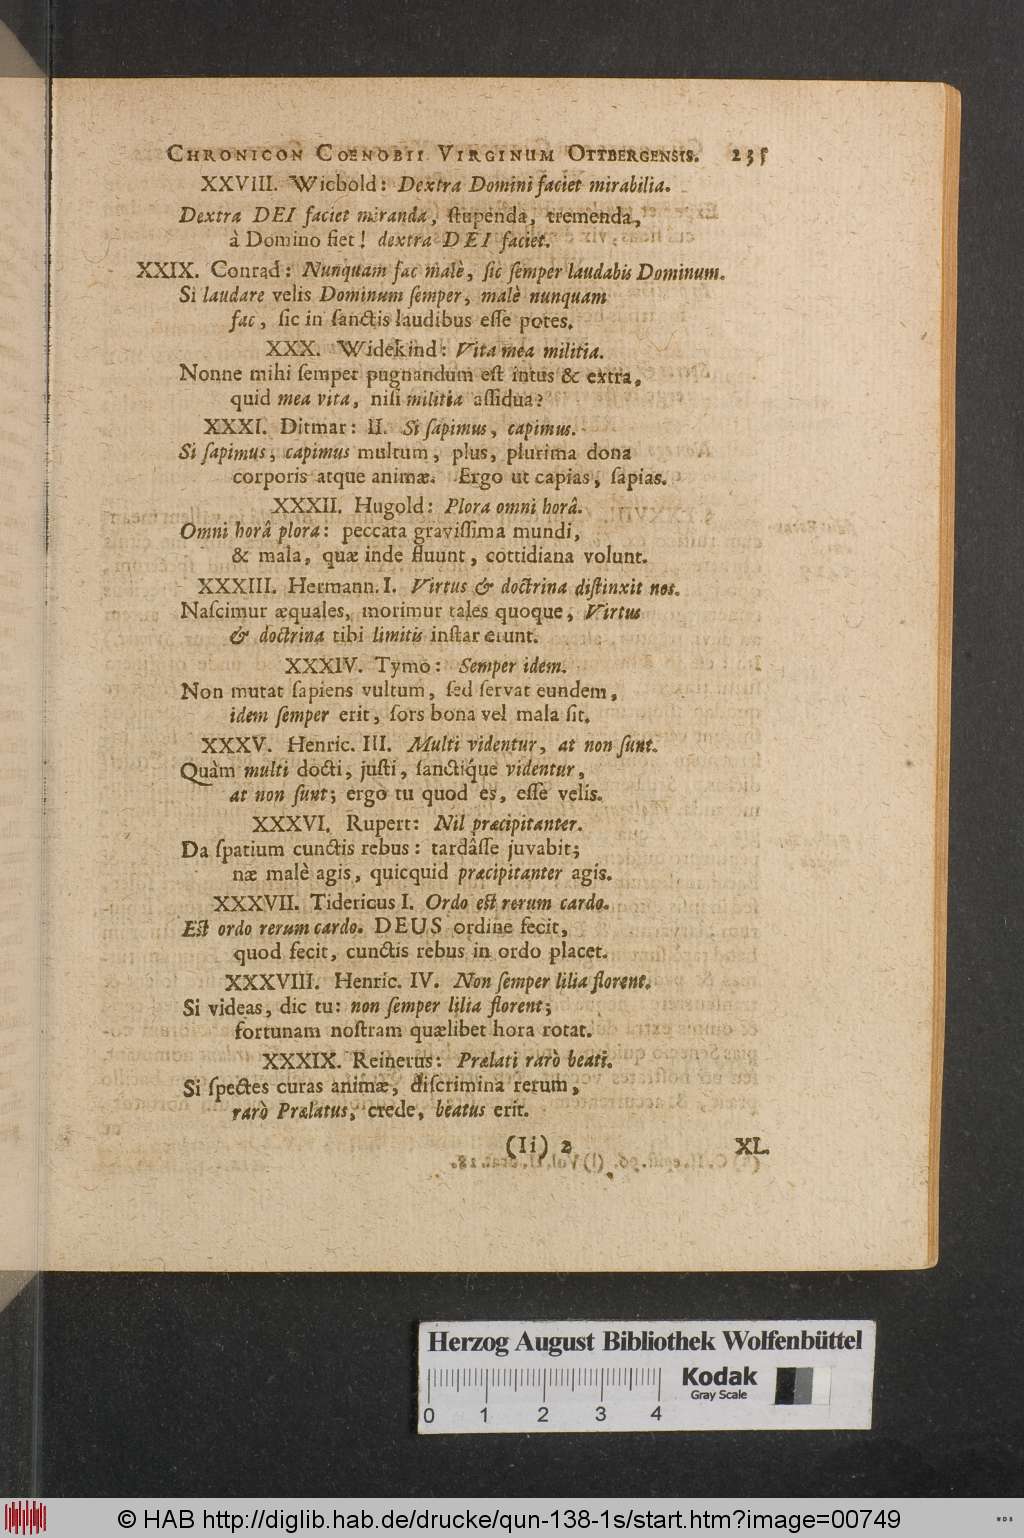 CHRONICON COENOBII VIRGINUM OTTBERGENSIS. 235
XXVIII. Wicbold: Dextra Domini faciet mirabilia.
Dextra DEI faciet miranda, ſtupenda, tremenda,
à Domino fiet! dextra DEI faciet.
XXIX. Conrad: Nunquam fac malè, ſic ſemper laudabis Dominum.
Si laudare velis Dominum ſemper, malè nunquam
fac, ſic in ſanctis laudibus eſſe potes.
XXX. Widekind: Vita mea militia.
Nonne mihi ſemper pugnandum eſt intus & extra,
quid mea vita, niſi militia aſſidua?
XXXI. Ditmar: II. Si ſapimus, capimus.
Si ſapimus, capimus multum, plus, plurima dona
corporis atque animæ. Ergo ut capias, ſapias.
XXXII. Hugold: Plora omni horâ.
Omni horâ plora: peccata graviſſima mundi,
& mala, quæ inde fluunt, cottidiana volunt.
XXXIII. Hermann. I. Virtus & doctrina diſtinxit nos.
Naſcimur æquales, morimur tales quoque, Virtus
& doctrina tibi limitis inſtar erunt.
XXXIV. Tymo: Semper idem.
Non mutat ſapiens vultum, ſed ſervat eundem,
idem ſemper erit, ſors bona vel mala ſit.
XXXV. Henric. III. Multi videntur, at non ſunt.
Quàm multi docti, juſti, ſanctiq́ue videntur,
at non ſunt; ergo tu quod es, eſſe velis.
XXXVI. Rupert: Nil præcipitanter.
Da ſpatium cunctis rebus: tardâſſe juvabit;
næ malè agis, quicquid præcipitanter agis.
XXXVII. Tidericus I. Ordo eſt rerum cardo.
Eſt ordo rerum cardo. DEUS ordine fecit,
quod fecit, cunctis rebus in ordo placet.
XXXVIII. Henric. IV. Non ſemper lilia florent.
Si videas, dic tu: non ſemper lilia florent;
fortunam noſtram quælibet hora rotat.
XXXIX. Reinerus: Prælati rarò beati.
Si ſpectes curas animæ, diſcrimina rerum,
rarò Prælatus, crede, beatus erit.
(Ii) 2 XL.
Herzog August Bibliothek Wolfenbüttel
Kodak
Gray Scale
0 1 2 3 4
© HAB http://diglib.hab.de/drucke/qun-138-1s/start.htm?image=00749